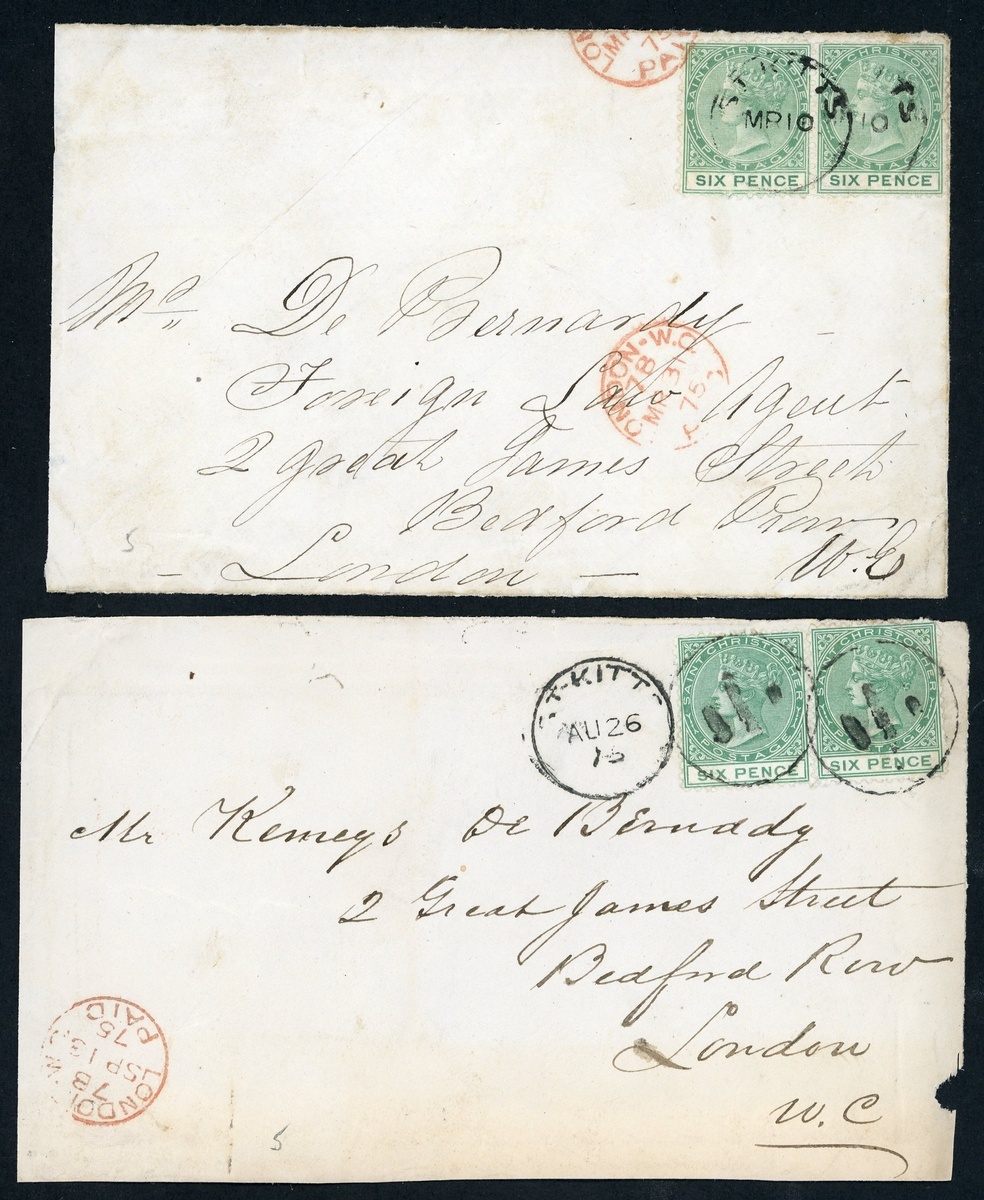 LON MR 75 PAI
SAINT CHRISTOPHER POSTAGE SIX PENCE
SAINT CHRISTOPHER POSTAGE SIX PENCE
ST KITTS MR 10
TTS 10
Mr. De Bernardy
LONDON-W.C. MR 31 75
Foreign Law Agent
2 Great James Street
Bedford Row
London W.C
5
ST-KITTS AU 26 75
SAINT CHRISTOPHER POSTAGE SIX PENCE
SAINT CHRISTOPHER POSTAGE SIX PENCE
Mr Kemeys De Bernaddy
2 Great James Street
Bedford Row
London
W.C
LONDON W 7B SP 13 75 PAID
5